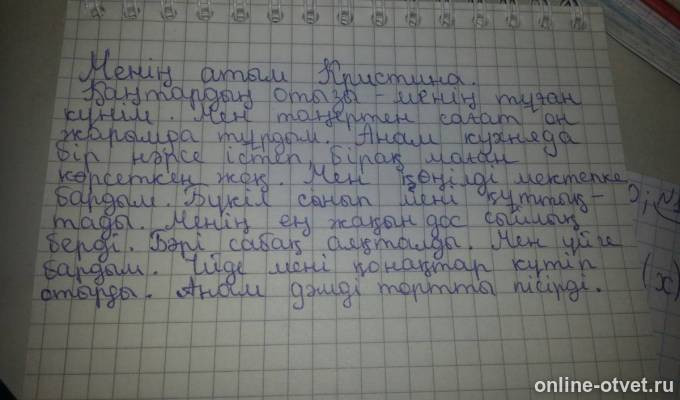 Менің атым Кристина.
Қаңтардың отызы - менің туған
күнім. Мен таңертен сағат он
жарымда тұрдым. Анам кухняда
бір нәрсе істеп, бірақ маған
көрсеткен жоқ. Мен көңілді мектепке
бардым. Бүкіл сынып мені құттық-
тады. Менің ең жақын дос сыйлық
берді. Бәрі сабақ аяқталды. Мен үйге
бардым. Үйде мені қонақтар күтіп
отырды. Анам дәмді тортты пісірді.
(x)
online-otvet.ru